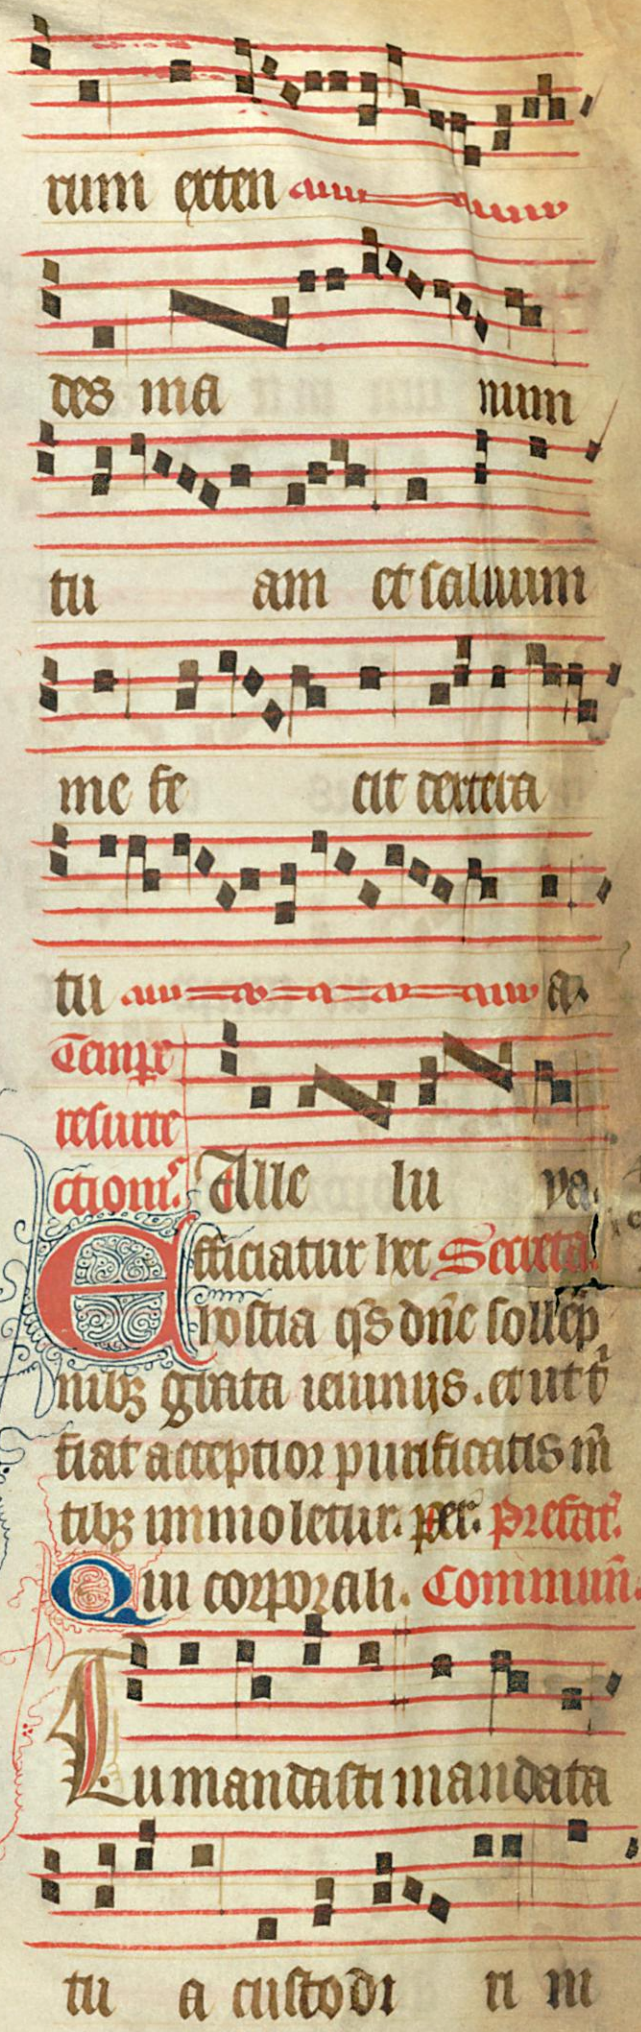 rum exten
des ma num
tu am et saluum
me fe cit dextera
tu a.
Tempr̄e
resurre
ctionis. Alle lu ya.
Efficiatur hec Secreta.
hostia qs dn̄e sollēp
nibꝫ grata ieiuniis. et ut t͛
fiat acceptior purificatis m̄
tibꝫ immoletur. per. Prefat.
Qui corporali. Commun̄.
Tu mandasti mandata
tu a custodi ri ni